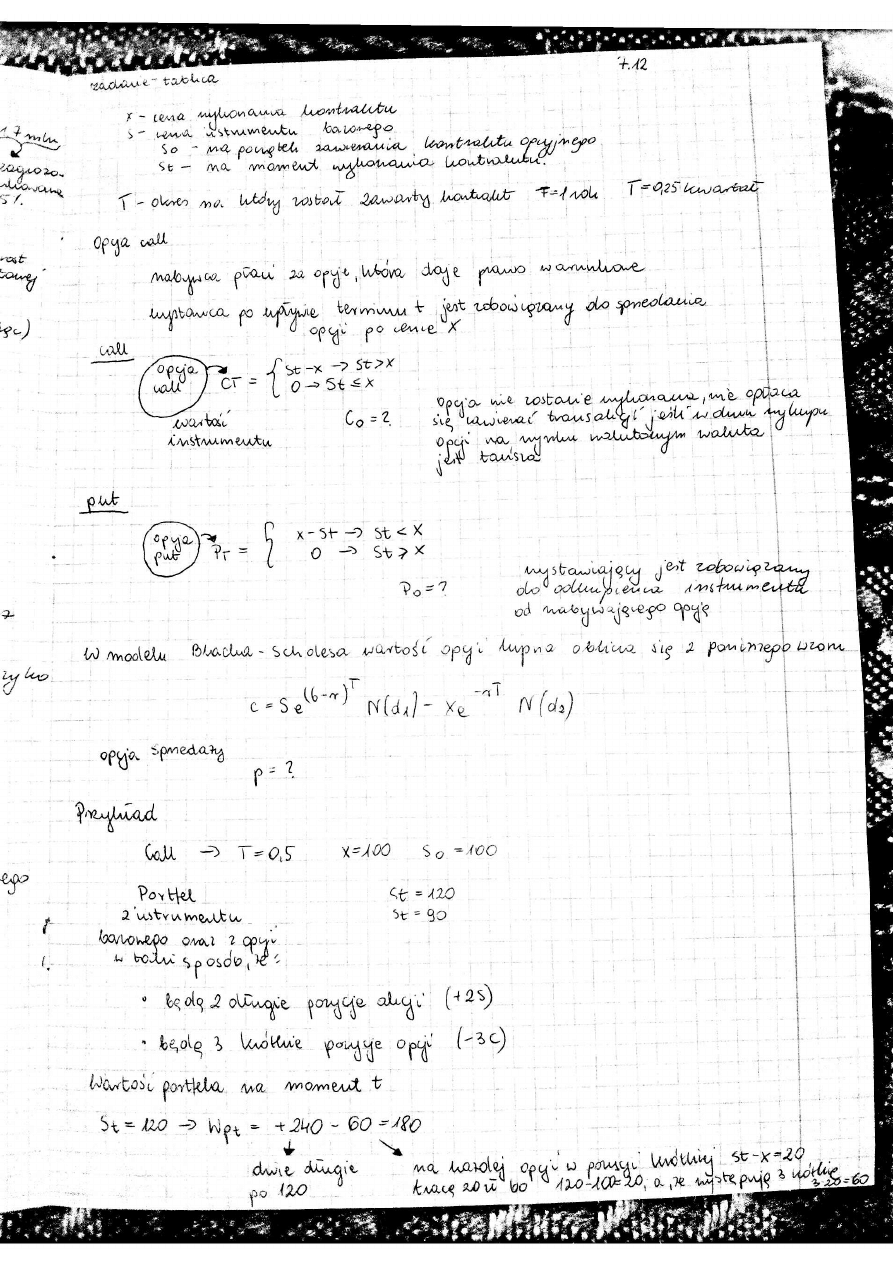 7.12
zadanie - tablica
x - cena wykonania kontraktu
s - cena instrumentu bazowego
So - na początek zawierania kontraktu opcyjnego
St - na moment wykonania kontraktu.
T - okres na który został zawarty kontrakt T=1 rok T=0,25 kwartał
Opcja call
nabywca płaci za opcje, która daje prawo warunkowe
wystawca po upływie terminu t jest zobowiązany do sprzedania
opcji po cenie X
call
opcja call CT = { St-x → St>x
0 → St ≤ x
wartość instrumentu
C0 = ?
opcja nie zostanie wykonana, nie opłaca
się zawierać transakcji jeśli w dniu wykupu
opcji na rynku walutowym waluta
jest tańsza
put
opcja put PT = { x-St → St < X
0 → St ⩾ X
P0 = ?
wystawiający jest zobowiązany
do odkupienia instrumentu
od nabywającego opcję
W modelu Blacka - Scholesa wartość opcji kupna oblicza się z poniższego wzoru
c = Se^(b-r)T N(d1) - Xe^-rT N(d2)
opcja sprzedaży
p = ?
Przykład
Call → T=0,5 x=100 S0 =100
Portfel
z instrumentu
bazowego oraz z opcji
w taki sposób, że:
St = 120
St = 90
• będą 2 długie pozycje akcji (+2S)
• będą 3 krótkie pozycje opcji (-3C)
Wartość portfela na moment t
St = 120 → Wpt = +240 - 60 = 180
dwie długie
po 120
na każdej opcji w pozycji krótkiej St-x=20
tracę 20 zł bo 120-100=20, a, że występują 3 krótkie
3·20=60
17 mln
5%.